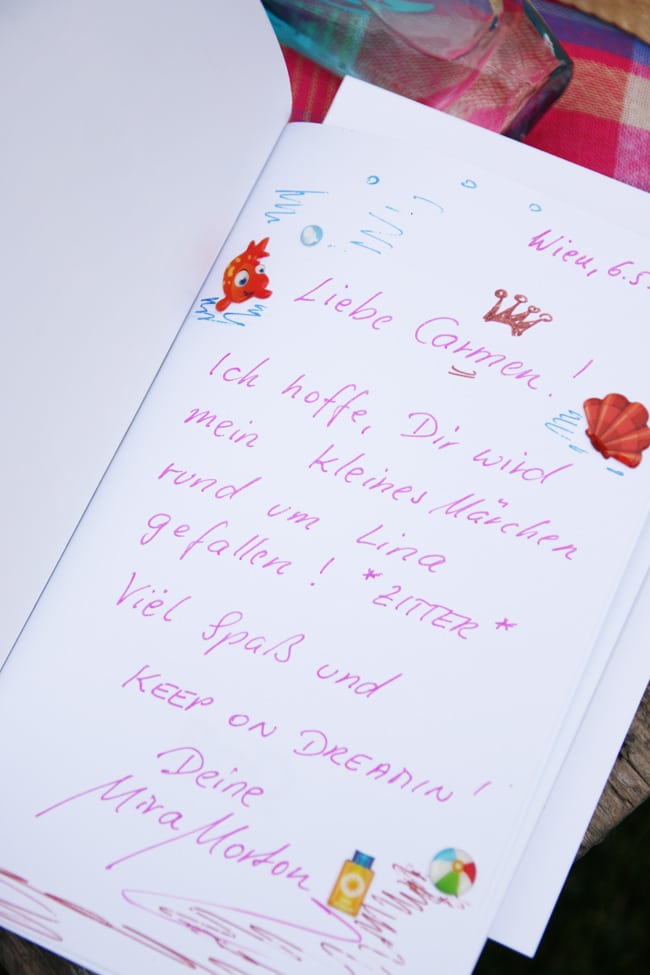 Wien, 6.5.
Liebe Carmen!
Ich hoffe, Dir wird
mein kleines Märchen
rund um Lina
gefallen! *ZITTER*
Viel Spaß und
KEEP ON DREAMIN'!
Deine
Mira Morton